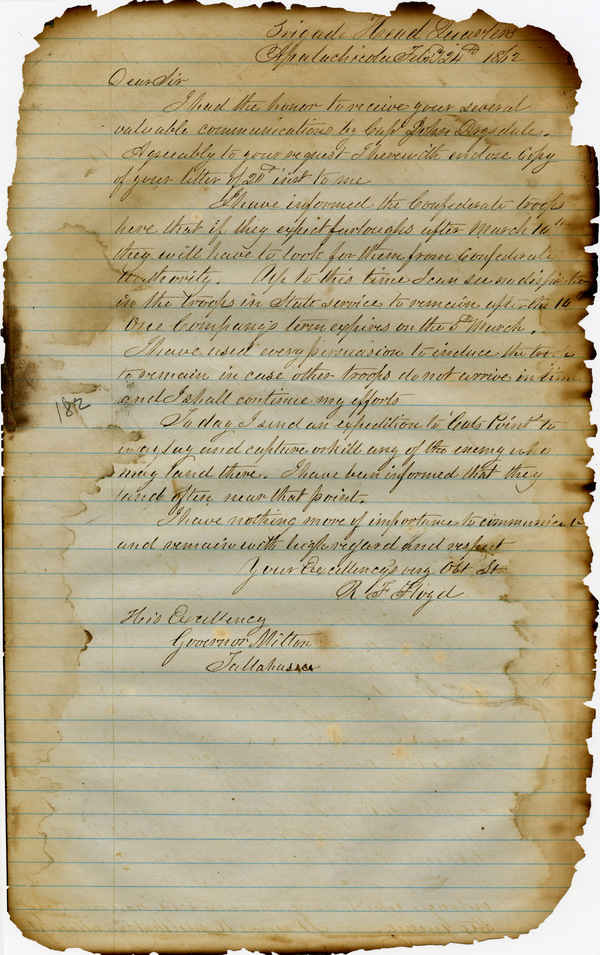 Brigade Head Quarters
Apalachicola Feby 24th 1862
Dear Sir
I had the honor to receive your several
valuable communications by Capt John Drysdale.
Agreeably to your request I herewith enclose Copy
of your letter of 21st inst to me
I have informed the Confederate troops
here that if they expect furloughs after March 10th
they will have to look for them from Confederate
Authority. Up to this time I can see no disposition
in the troops in State service to remain after the 10th
One Company's term expires on the 5th March.
I have used every persuasion to induce the troops
to remain in case other troops do not arrive in time
and I shall continue my efforts
182
To day I send an expedition to Cats Point to
waylay and capture or kill any of the enemy who
may land there. I have been informed that they
land often near that point.
I have nothing more of importance to communicate
and remain with high regard and respect
Your Excellency's very Obt St
R F Floyd
His Excellency
Governor Milton
Tallahassee